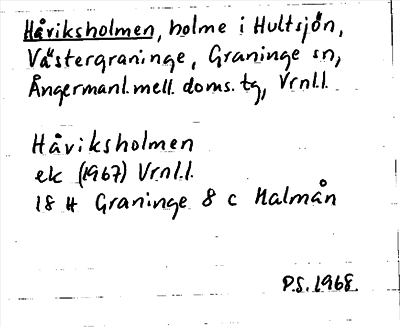 Håviksholmen, holme i Hultsjön,
Västergraninge, Graninge sn,
Ångermanl. mell. doms. tg, Vrnl.l.
Håviksholmen
ek (1967) Vrnl.l.
18 H Graninge 8 c Malmån
P.S. 1968.